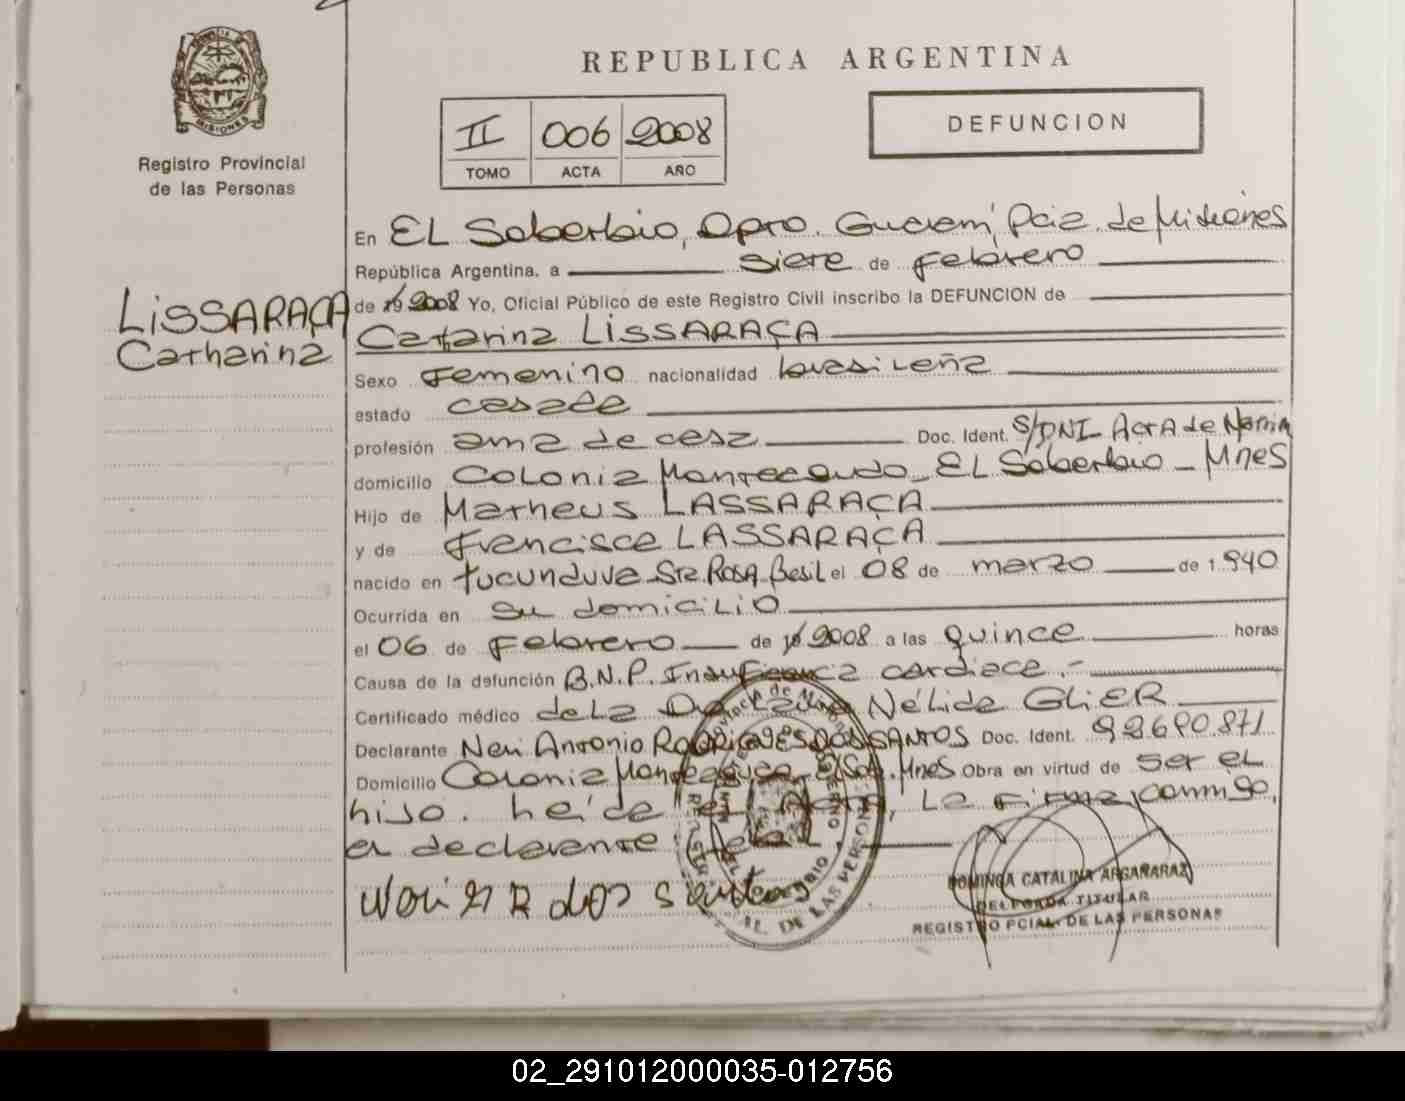 REPUBLICA ARGENTINA
MISIONES
Registro Provincial
de las Personas
II 006 2008
TOMO ACTA AÑO
DEFUNCION
LISSARAÇA
Catharina
En EL Soberbio, Dpto. Guaraní, Pcia. de Misiones
República Argentina, a siete de Febrero
de 19 2008 Yo, Oficial Público de este Registro Civil inscribo la DEFUNCION de
Catarina LISSARAÇA
Sexo Femenino nacionalidad brasileña
estado casada
profesión ama de casa Doc. Ident. S/DNI Acta de
domicilio Colonia El Soberbio - Mnes
Hijo de Matheus LASSARAÇA
y de Francisca LASSARAÇA
nacido en Tucunduva Sta. Rosa el 08 de marzo de 1.940
Ocurrida en su domicilio
el 06 de Febrero de 19 2008 a las quince horas
Causa de la defunción B.N.P. Insuficiencia cardiaca.-
Certificado médico de La Nélida GLIER
Declarante Neri Antonio RODRIGUES DOS SANTOS Doc. Ident. 92.680.871
Domicilio Colonia Mnes Obra en virtud de ser el
hijo. Leída el Acta, La firma conmigo,
el declarante
dos santos
DOMINGA CATALINA ARGAÑARAZ
DELEGADA TITULAR
REGISTRO PCIAL. DE LAS PERSONAS
02_291012000035-012756